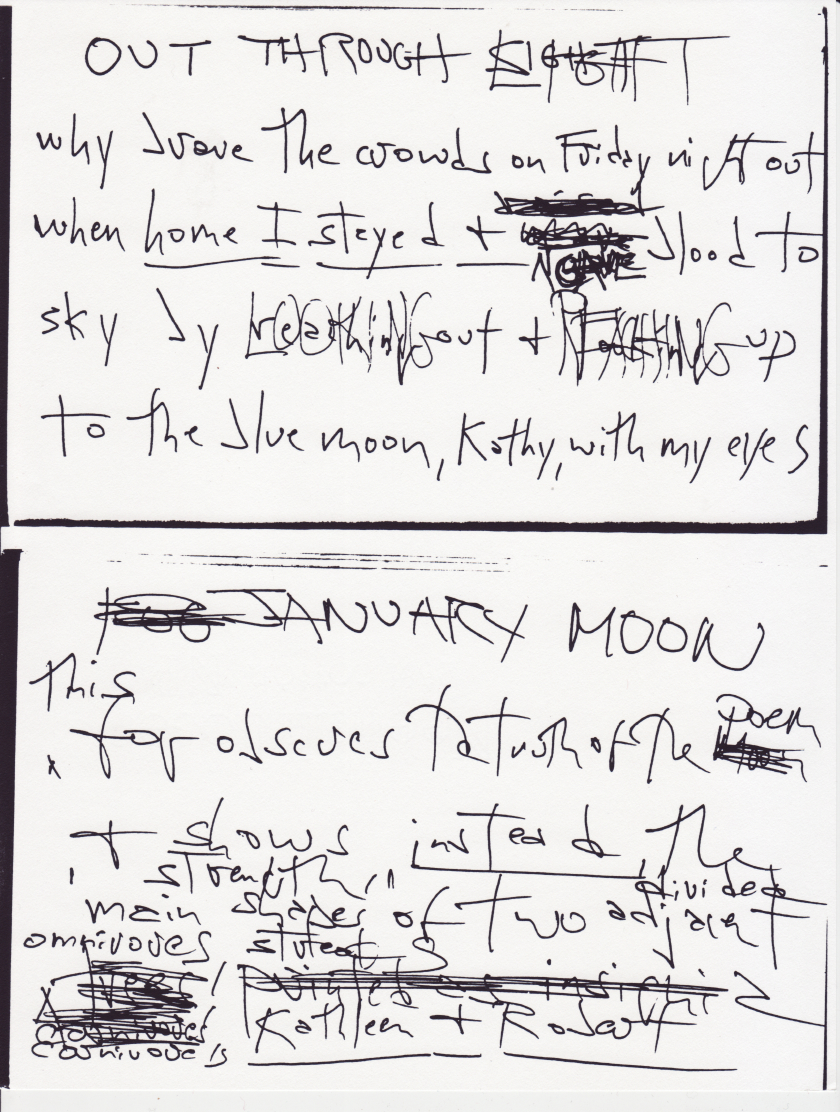 OUT THROUGH SIGHT
why brave the crowds on Friday night out
when home I stayed + blood to
sky by out + up
to the blue moon, Kathy, with my eyes
JANUARY MOON
this
fog obscures the truth of the poem
+ shows instead the
strength,
divided
main shapes of two adjacent
omnivores streets
Kathleen + Robert
carnivore is